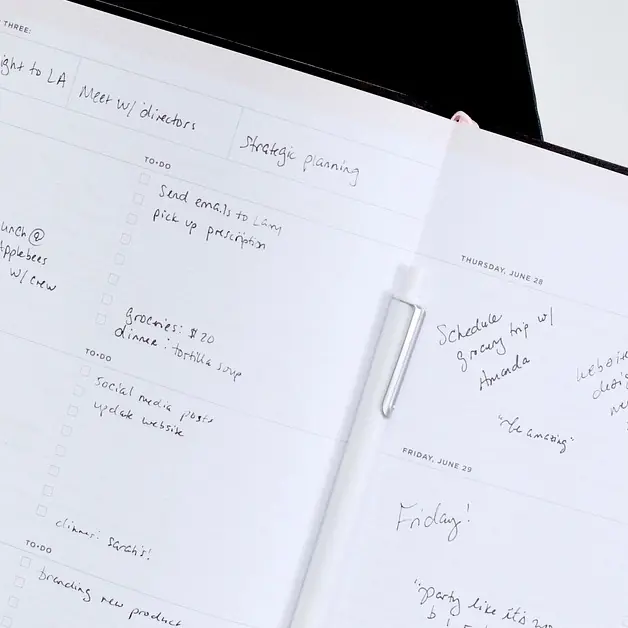 THREE:
ght to LA
Meet w/ directors
Strategic planning
TO•DO
Send emails to Larry
pick up prescription
unch @
Applebees
w/ crew
groceries: $20
dinner: tortilla soup
TO•DO
Social media posts
update website
dinner: Sarah's!
TO•DO
branding new product
THURSDAY, JUNE 28
Schedule
grocery trip w/
Amanda
website
"be amazing"
FRIDAY, JUNE 29
Friday!
"party like it's